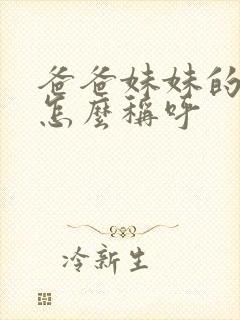 爸爸妹妹的
怎麼稱呼
冷新生